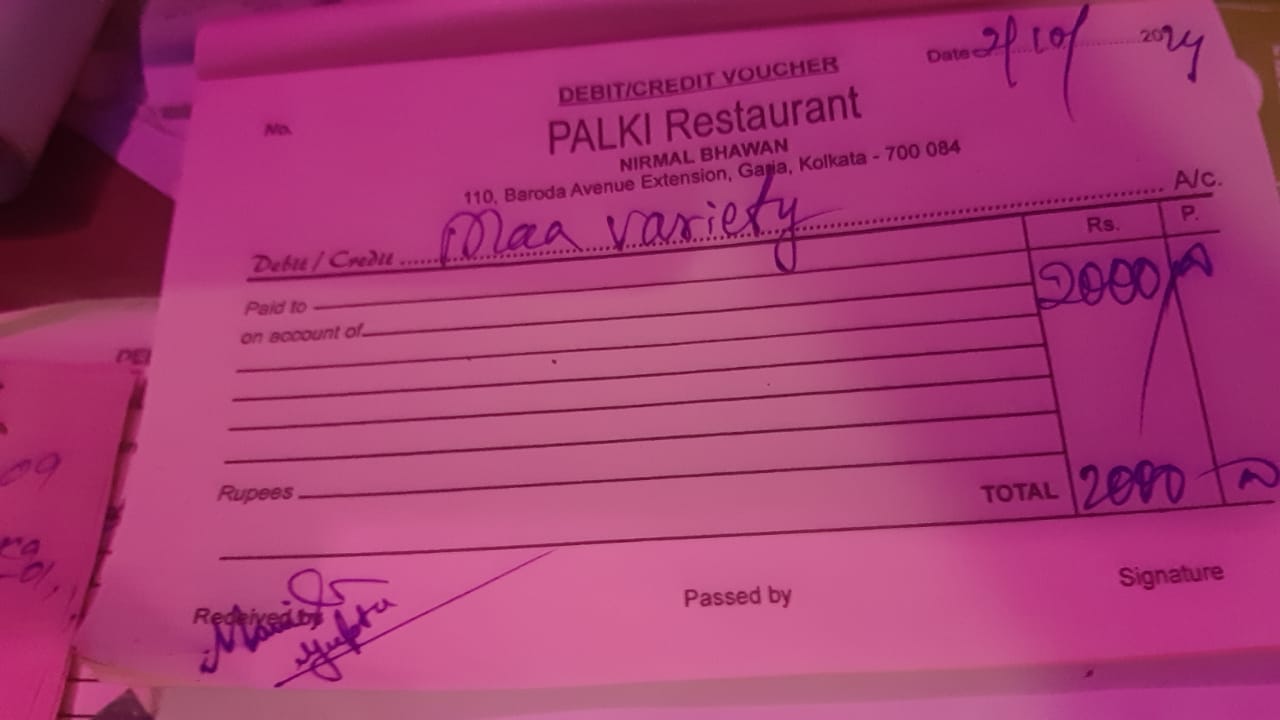 Date 2/10/2024
DEBIT/CREDIT VOUCHER
No.
PALKI Restaurant
NIRMAL BHAWAN
110, Baroda Avenue Extension, Garia, Kolkata - 700 084
Debit / Credit Maa variety A/c.
Rs. P.
Paid to 2000/
on account of
Rupees TOTAL 2000
Received by Passed by Signature
Gupta
DEB
09